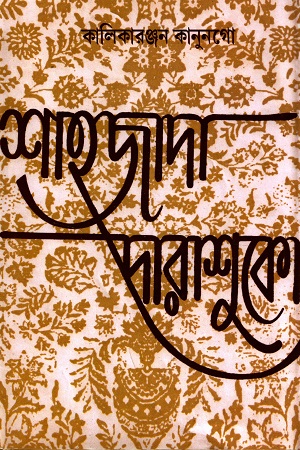 কালিকারঞ্জন কানুনগো
শাহজাদা
দারাশুকো